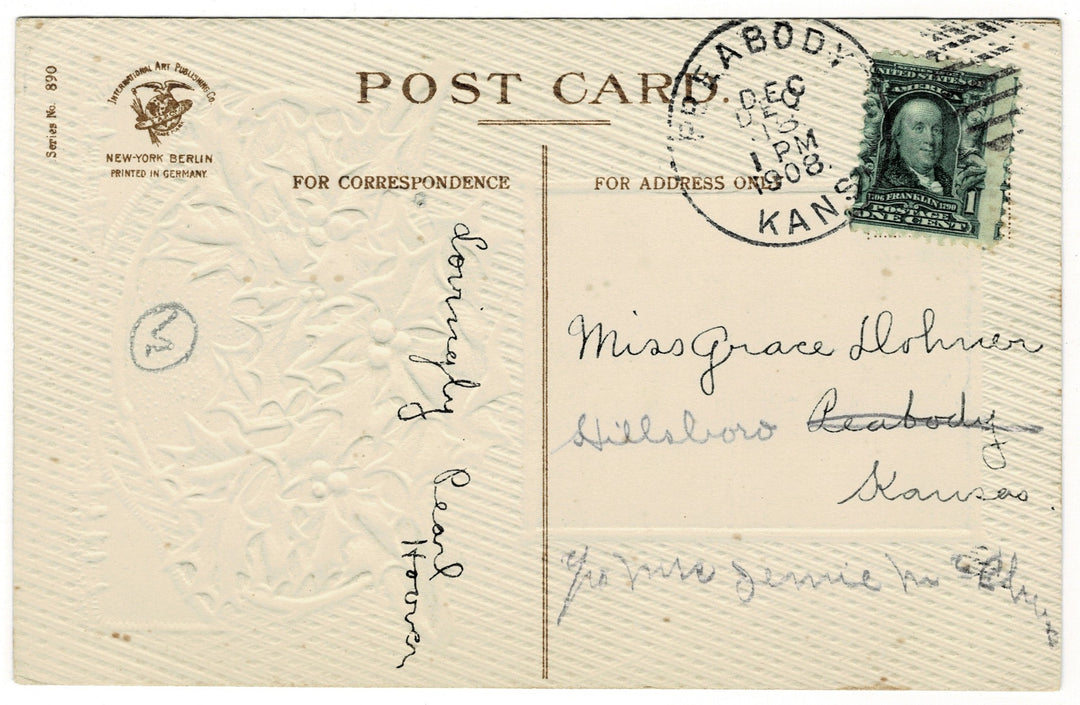 Series No. 890
INTERNATIONAL ART PUBLISHING CO.
NEW-YORK BERLIN
PRINTED IN GERMANY
POST CARD.
FOR CORRESPONDENCE
FOR ADDRESS ONLY
PEABODY
DEC
18
1 PM
1908.
KANS
UNITED STATES
AMERICA
FRANKLIN
POSTAGE
1
ONE CENT
Lovingly
Pearl
Hoover
Miss Grace Dohner
Hillsboro Peabody
Kansas
Mrs Jennie M